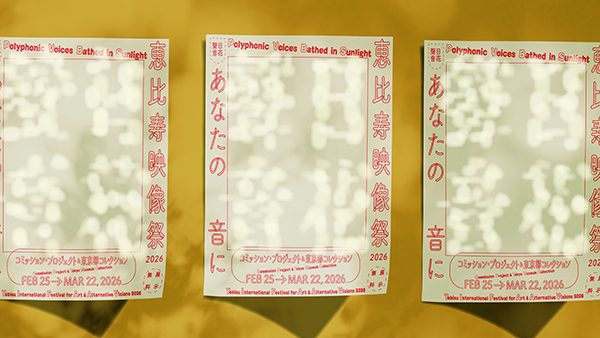 Polyphonic Voices Bathed in Sunlight
恵比寿映像祭
2026
コミッション・プロジェクト&東京都コレクション
FEB 25→MAR 22, 2026
Yebisu International Festival for Art & Alternative Visions 2026
Polyphonic Voices Bathed in Sunlight
恵比寿映像祭
2026
あなたの 音に
コミッション・プロジェクト&東京都コレクション
FEB 25→MAR 22, 2026
Yebisu International Festival for Art & Alternative Visions 2026
Polyphonic Voices Bathed in Sunlight
恵比寿映像祭
あなたの 音に
コミッション・プロジェクト&東京都コレクション
FEB 25→MAR 22, 2026
Yebisu International Festival for Art & Alternative Visions 2026